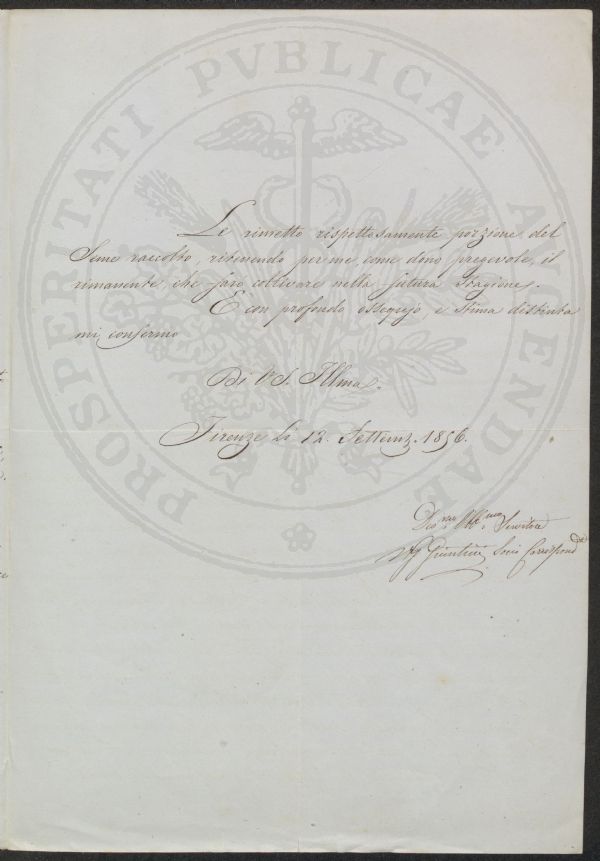 PROSPERITATI PVBLICAE AVGENDAE
Le rimetto rispettosamente porzione del
Seme raccolto, ritenendo per me, come dono pregevole, il
rimanente, che farò coltivare nella futura Stagione.
E con profondo ossequio e Stima distinta
mi confermo
Di V. S. Illma.
Firenze li 12. Settemb. 1856.
Devmo Obbmo Servitore
Giuntini Socio Corrispondte